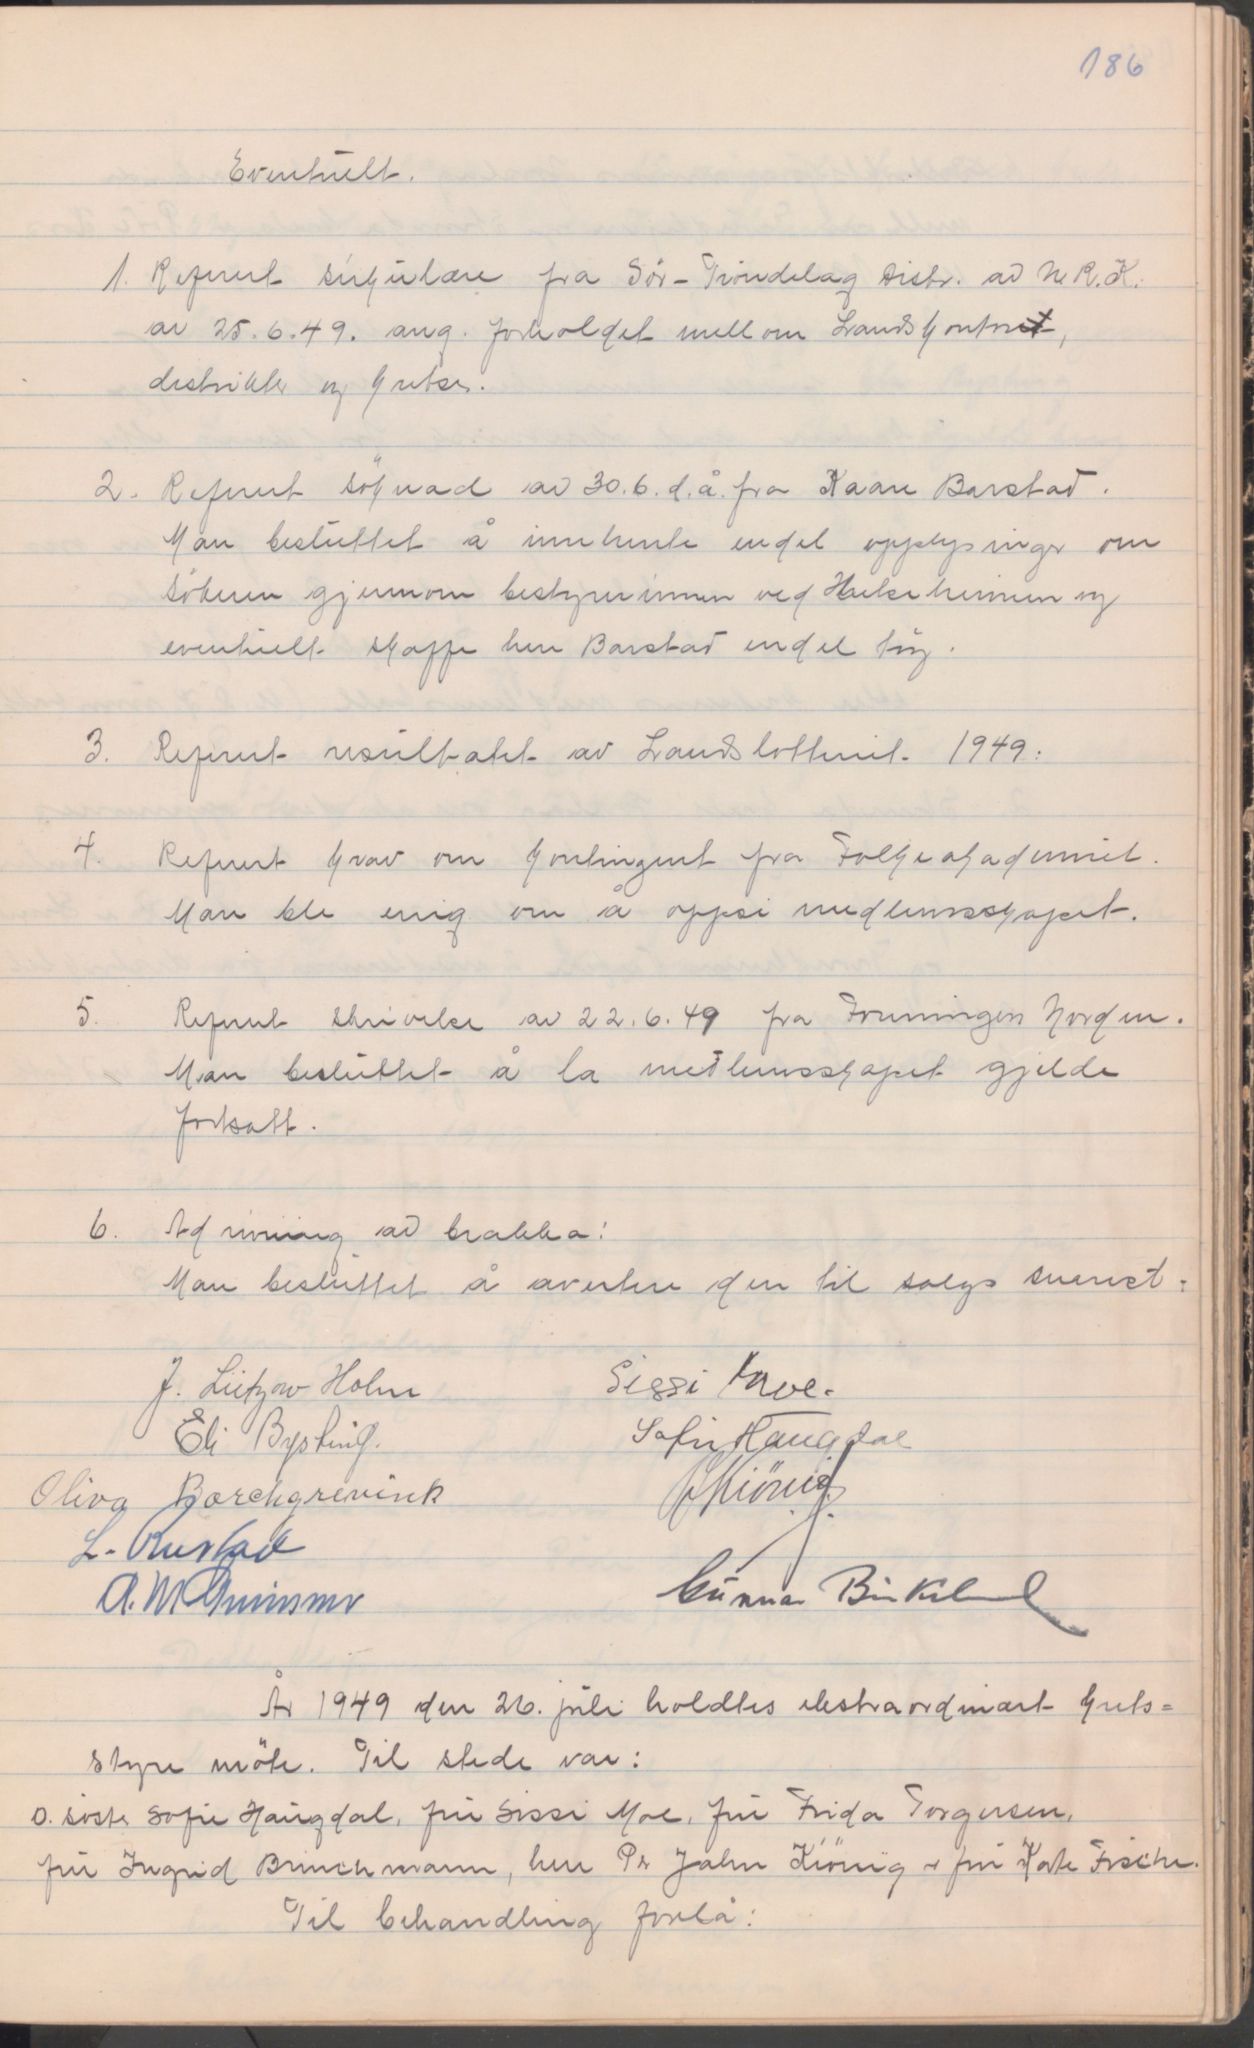 186
Eventuelt.
1. Referert sirkulære fra Sör-Tröndelag Distr. av N.R.K.
av 25.6.49. ang. forholdet mellom Landskontoret,
distrikter og kretser.
2. Referert søknad av 30.6.d.å. fra Kaare Barstad.
Man besluttet å innhente endel opplysninger om
søkeren gjennom bestyrerinnen ved Helseheimen og
eventuelt skaffe herr Barstad endel tøy.
3. Referert resultatet av Landslotteriet 1949.
4. Referert krav om kontingent fra Folkeakademiet.
Man ble enig om å oppsi medlemsskapet.
5. Referert skrivelse av 22.6.49 fra Foreningen Norden.
Man besluttet å la medlemsskapet gjelde
fortsatt.
6. Ad rivning av brakka:
Man besluttet å avertere den til salgs snarest.
J. Lützow Holm Sissi Moe.
Eli Bysting. Sofie Haugdal
Oliva Borchgrevink J Kiönig
L. Rustad
A. M. Gunnar Birkeland
År 1949 den 26. juli holdtes ekstraordinært krets=
styre møte. Til stede var:
O. söster Sofie Haugdal, fru Sissi Moe, fru Frida Torgersen,
fru Ingrid Brinchmann, herr Pr John Kiönig & fru Kate Fischer.
Til behandling forelå: